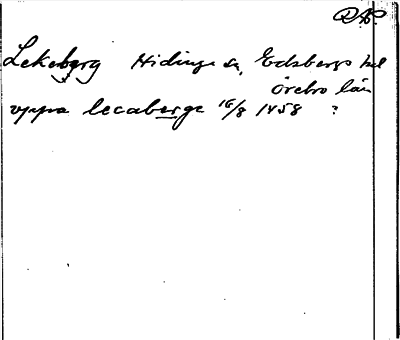 RAP
Lekeberg Hidinge sn, Edsbergs hd
Örebro län
vppa lecaberge 16/8 1458 ?